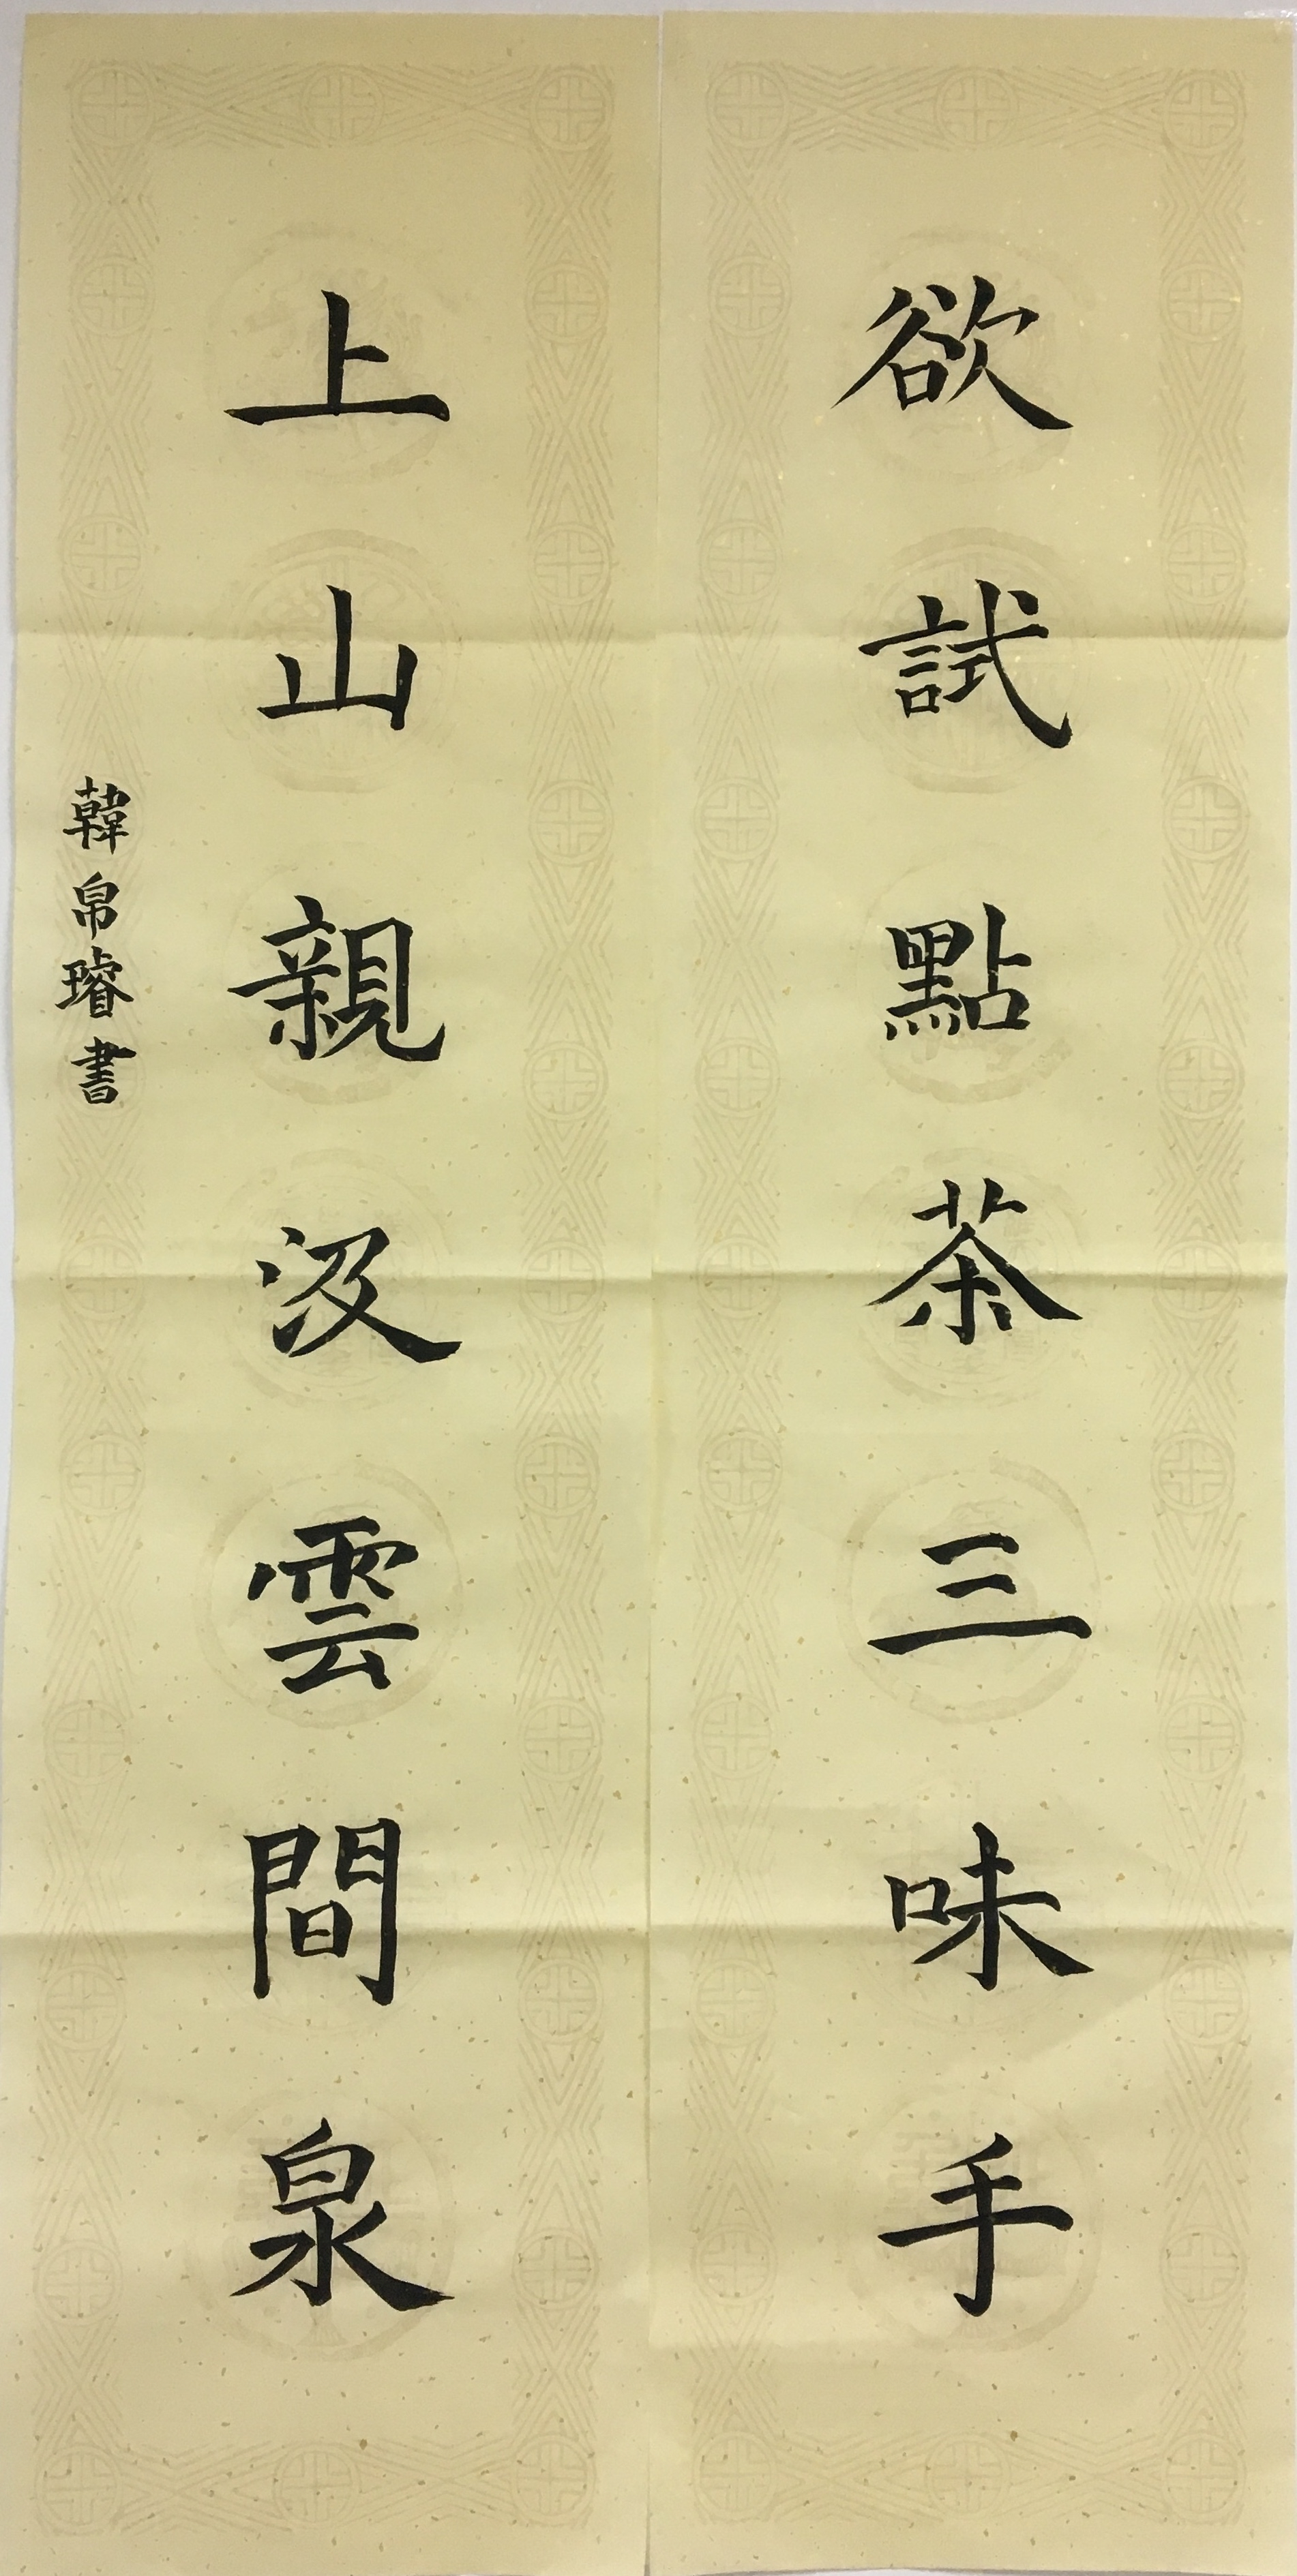 欲試點茶三味手
上山親汲雲間泉
韓帛璿書